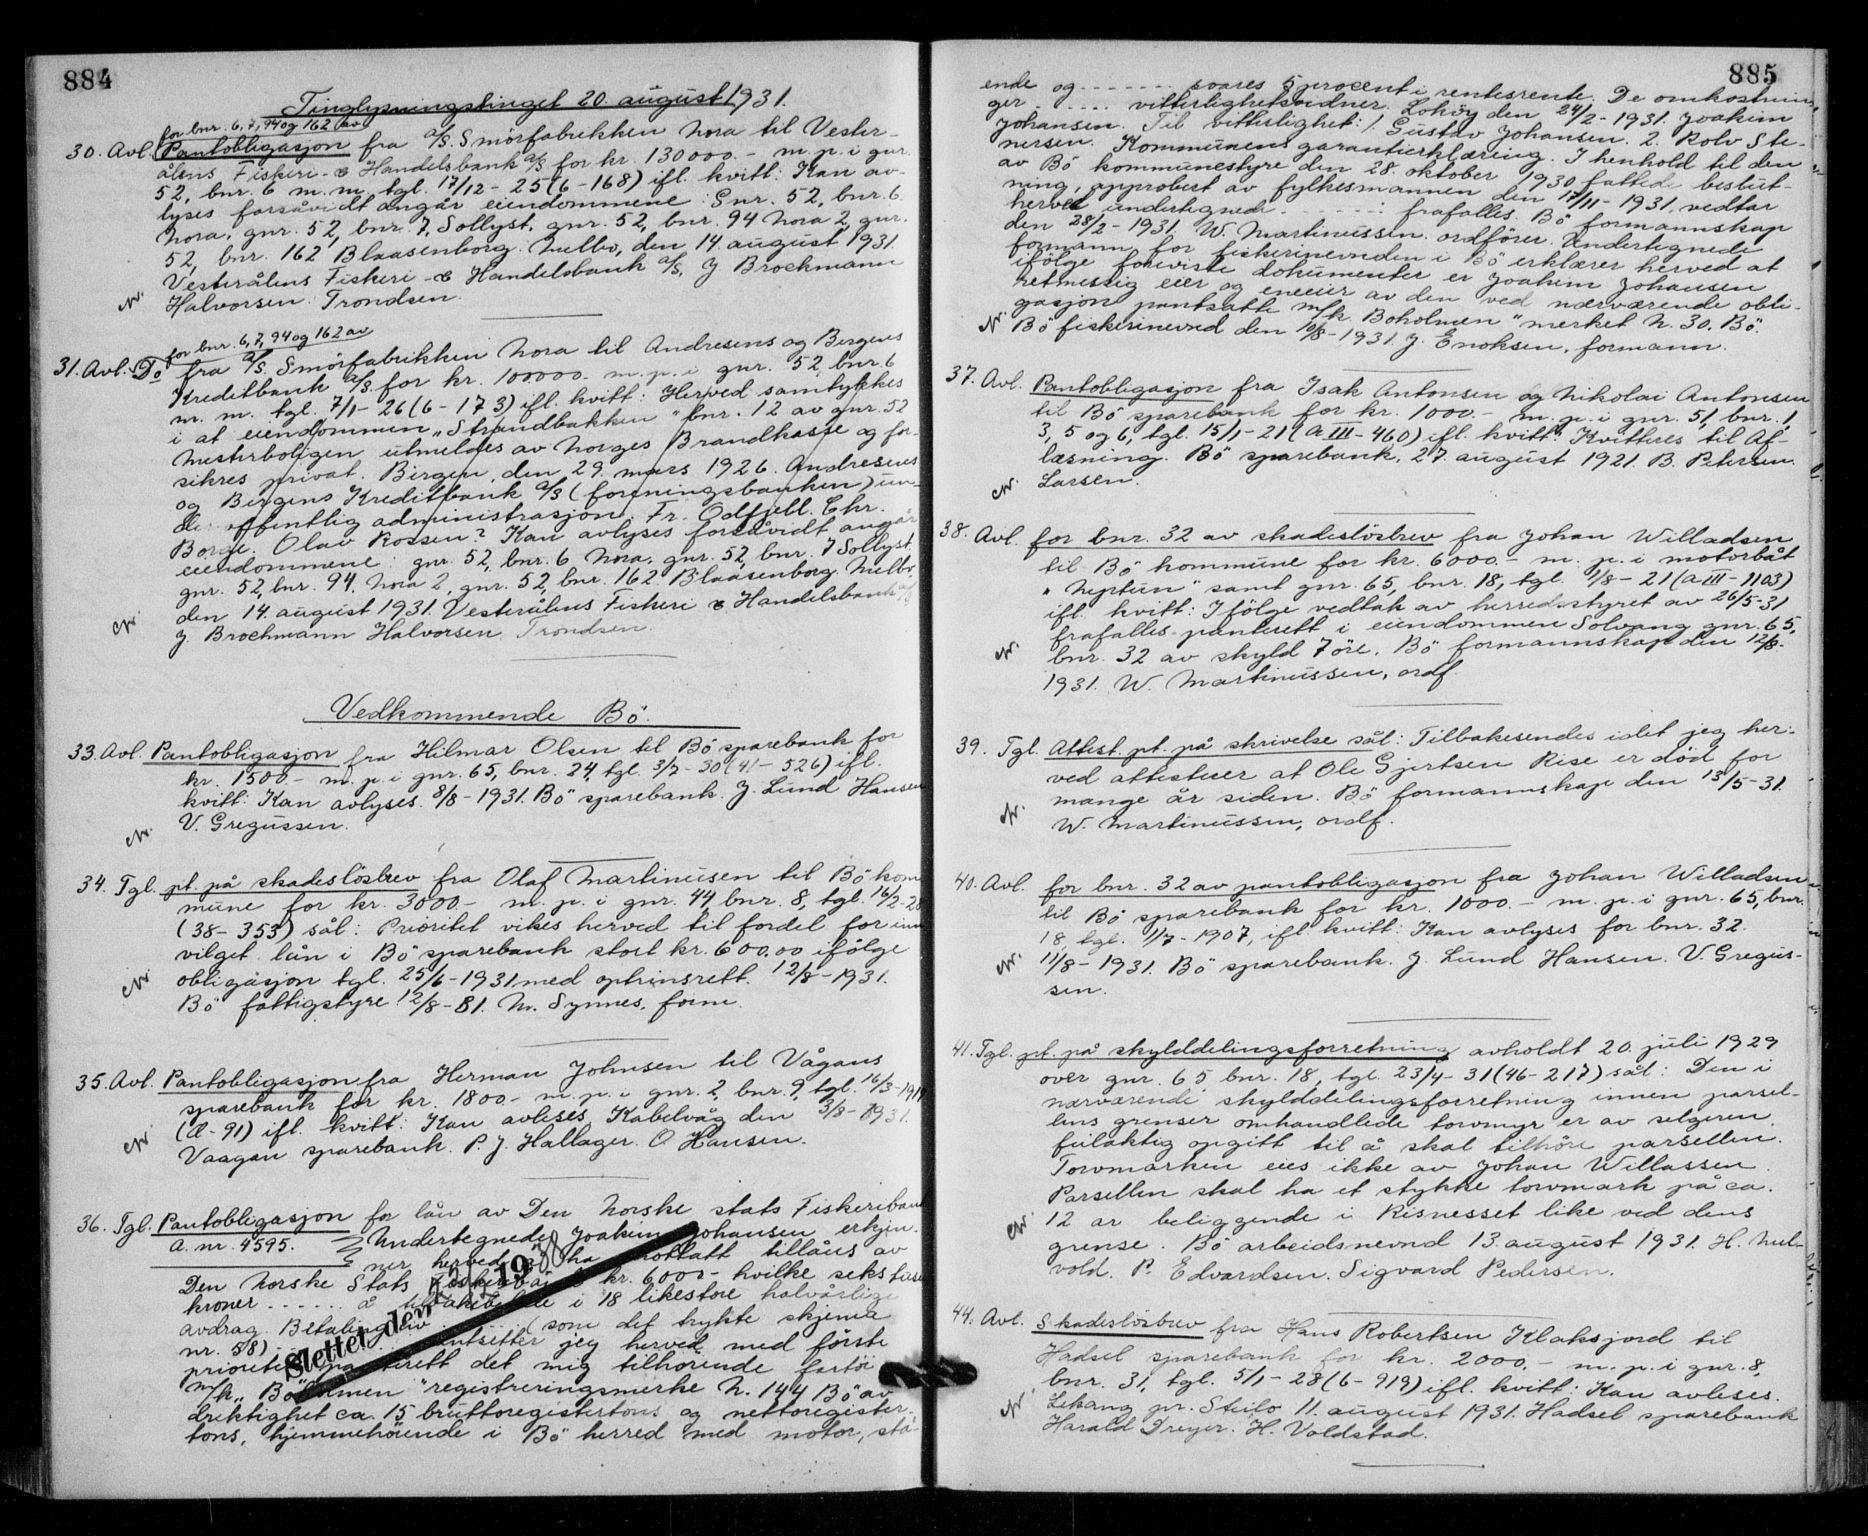 884
Tinglysningstinget 20 august 1931.
for bnr. 6, 7, 94 og 162 av
30. Avl. Pantobligasjon fra A/S. Smörfabrikken Nora til Vester-
ålens Fiskeri- & Handelsbank A/S for kr. 130000.- m. p. i gnr.
52, bnr. 6 m. m. tgl. 17/12-25 (6-168) ifl. kvitt: Kan av-
lyses forsåvidt angår eiendommene: Gnr. 52, bnr. 6
Nora, gnr. 52, bnr. 7, Sollyst, gnr. 52, bnr. 94 Nora 2, gnr.
52, bnr. 162 Blaasenborg. Melbo, den 14 august 1931.
Vesterålens Fiskeri- & Handelsbank A/S, J Brochmann
Halvorsen. Trondsen.
for bnr. 6, 7, 94 og 162 av
31. Avl. Do fra A/S. Smörfabrikken Nora til Andresens og Bergens
Kreditbank A/S for kr. 100000.- m. p. i gnr. 52, bnr. 6
m. m. tgl. 7/1-26 (6-173) ifl. kvitt: Herved samtykkes
i at eiendommen „Strandbakken" bnr. 12 av gnr. 52
Mesterboligen utmeldes av Norges Brandkasse og for-
sikres privat. Bergen, den 29. mars 1926. Andresens
og Bergens Kreditbank A/S (foreningsbanken) un-
der offentlig administrasjon. Fr. Odfjell. Chr.
Borge. Olav Rossen? Kan avlyses forsåvidt angår
eiendommene: gnr. 52, bnr. 6 Nora, gnr. 52, bnr. 7 Sollyst,
gnr. 52, bnr. 94, Nora 2, gnr. 52, bnr. 162 Blaasenborg. Melbo,
den 14. august 1931. Vesterålens Fiskeri & Handelsbank A/S
J. Brochmann Halvorsen. Trondsen.
Vedkommende Bö.
33. Avl. Pantobligasjon fra Hilmar Olsen til Bö sparebank for
kr. 1500.- m. p. i gnr. 65, bnr. 24, tgl. 3/7-30 (41-526) ifl.
kvitt: Kan avlyses. 8/8-1931. Bö sparebank. J. Lund Hansen
V. Gregussen.
34. Tgl. pt. på skadeslösbrev fra Olaf Martinusen til Bö kom
mune for kr. 3000.- m. p. i gnr. 44, bnr. 8, tgl. 16/2-28
(38-353) sål: Prioritet vikes herved til fordel for inn
vilget lån i Bö sparebank stort kr. 600.00 ifölge
obligasjon tgl. 25/6-1931 med optrinsrett. 12/8-1931.
Bö fattigstyre 12/8-31. M. Synnes, form.
35. Avl. Pantobligasjon fra Herman Johnsen til Vågans
sparebank for kr. 1800.- m. p. i gnr. 2, bnr. 9, tgl. 16/3-1917
(Æ-91) ifl. kvitt: Kan avlæses. Kabelvåg den 3/8-1931.
Vaagan sparebank. P. J. Hallager. O. Hansen.
36. Tgl. Pantobligasjon for lån av Den Norske stats Fiskeribank
A. nr. 4595. Undertegnede Joakim Johansen erkjen-
ner herved å ha mottatt tillåns av
Den Norske Stats Fiskeribank kr. 6000.- hvilke seks tusen
kroner ...... å tilbakebetale i 18 likestore halvårlige
avdrag. Betaling av ...... (som det trykte skjema
nr. 58) ...... pantsetter jeg herved med förste
prioritets panterett det mig tilhörende fartöi
m/k. „Boholmen" registreringsmerke N. 144 Bö av
drektighet ca. 15 bruttoregistertons og nettoregister-
tons, hjemmehörende i Bö herred med motor, stå-
Slettet den 19
885
ende og ........ svares 5 procent i rentesrente. De omkostnin-
ger ..... vitterlighetsvidner. Lohöy den 24/2-1931. Joakim
Johansen. Til vitterlighet: 1. Gustav Johansen. 2. Rolv Ste-
nersen. Kommunens garantierklæring. I henhold til den
av Bö kommunestyre den 28. oktober 1930 fattede beslut-
ning, approbert av fylkesmannen den 17/11-1931, vedtar
herved undertegnede ...... frafalles. Bö formannskap
den 28/2-1931. W. Martinussen. ordförer. Undertegnede
formann for fiskerinevnden i Bö erklærer herved at
ifölge foreviste dokumenter er Joakim Johansen
retmessig eier og eneeier av den ved nærværende obli-
gasjon pantsatte m/k. Boholmen" merket N. 30. Bö.
Bö fiskerinevnd den 10/8-1931. J. Enoksen, formann.
37. Avl. Pantobligasjon fra Isak Antonsen og Nikolai Antonsen
til Bö sparebank for kr. 1000.- m. p. i gnr. 51, bnr. 1,
3, 5 og 6, tgl. 15/1-21 (A III-460) ifl. kvitt: Kvitteres til Af-
læsning. Bö sparebank, 27. august 1921. B. Petersen.
Larsen.
38. Avl. for bnr. 32 av skadeslösbrev fra Johan Willadsen
til Bö kommune for kr. 6000.- m. p. i motorbåt
„Neptun" samt gnr. 65, bnr. 18, tgl. 1/8-21 (A III-1103)
ifl. kvitt: Ifölge vedtak av herredsstyret av 26/5-31
frafalles panterett i eiendommen Solvang gnr. 65,
bnr. 32 av skyld 7 öre. Bö formannskap den 12/8-
1931. W. Martinussen, ordf.
39. Tgl. Attest pt. på skrivelse sål: Tilbakesendes idet jeg her-
ved attesterer at Ole Gjertsen Rise er död for
mange år siden. Bö formannskap den 13/5-31.
W. Martinussen, ordf.
40. Avl. for bnr. 32 av pantobligasjon fra Johan Willadsen
til Bö sparebank for kr. 1000.- m. p. i gnr. 65, bnr.
18, tgl. 1/7-1907, ifl. kvitt: Kan avlyses for bnr. 32.
11/8-1931. Bö sparebank. J. Lund Hansen. V. Gregus-
sen.
41. Tgl. pt. på skylddelingsforretning avholdt 20. juli 1929
over gnr. 65, bnr. 18, tgl. 23/4-31 (46-217) sål: Den i
nærværende skylddelingsforretning innen parsel-
lens grenser omhandlede torvmyr er av selgeren
feilaktig opgitt til å skal tilhöre parsellen.
Torvmarken eies ikke av Johan Willassen.
Parsellen skal ha et stykke torvmark på ca.
12 ar beliggende i Risnesset like ved dens
grense. Bö arbeidsnevnd 13. august 1931. H. Mel-
vold. P. Edvardsen. Sigvard Pedersen.
44. Avl. Skadeslösbrev fra Hans Robertsen Klaksjord til
Hadsel sparebank for kr. 2000.- m. p. i gnr. 8,
bnr. 31, tgl. 5/1-28 (6-919) ifl. kvitt: Kan avleses.
Lekang pr. Steilo 11. august 1931. Hadsel sparebank
Harald Dreyer. H. Voldstad.